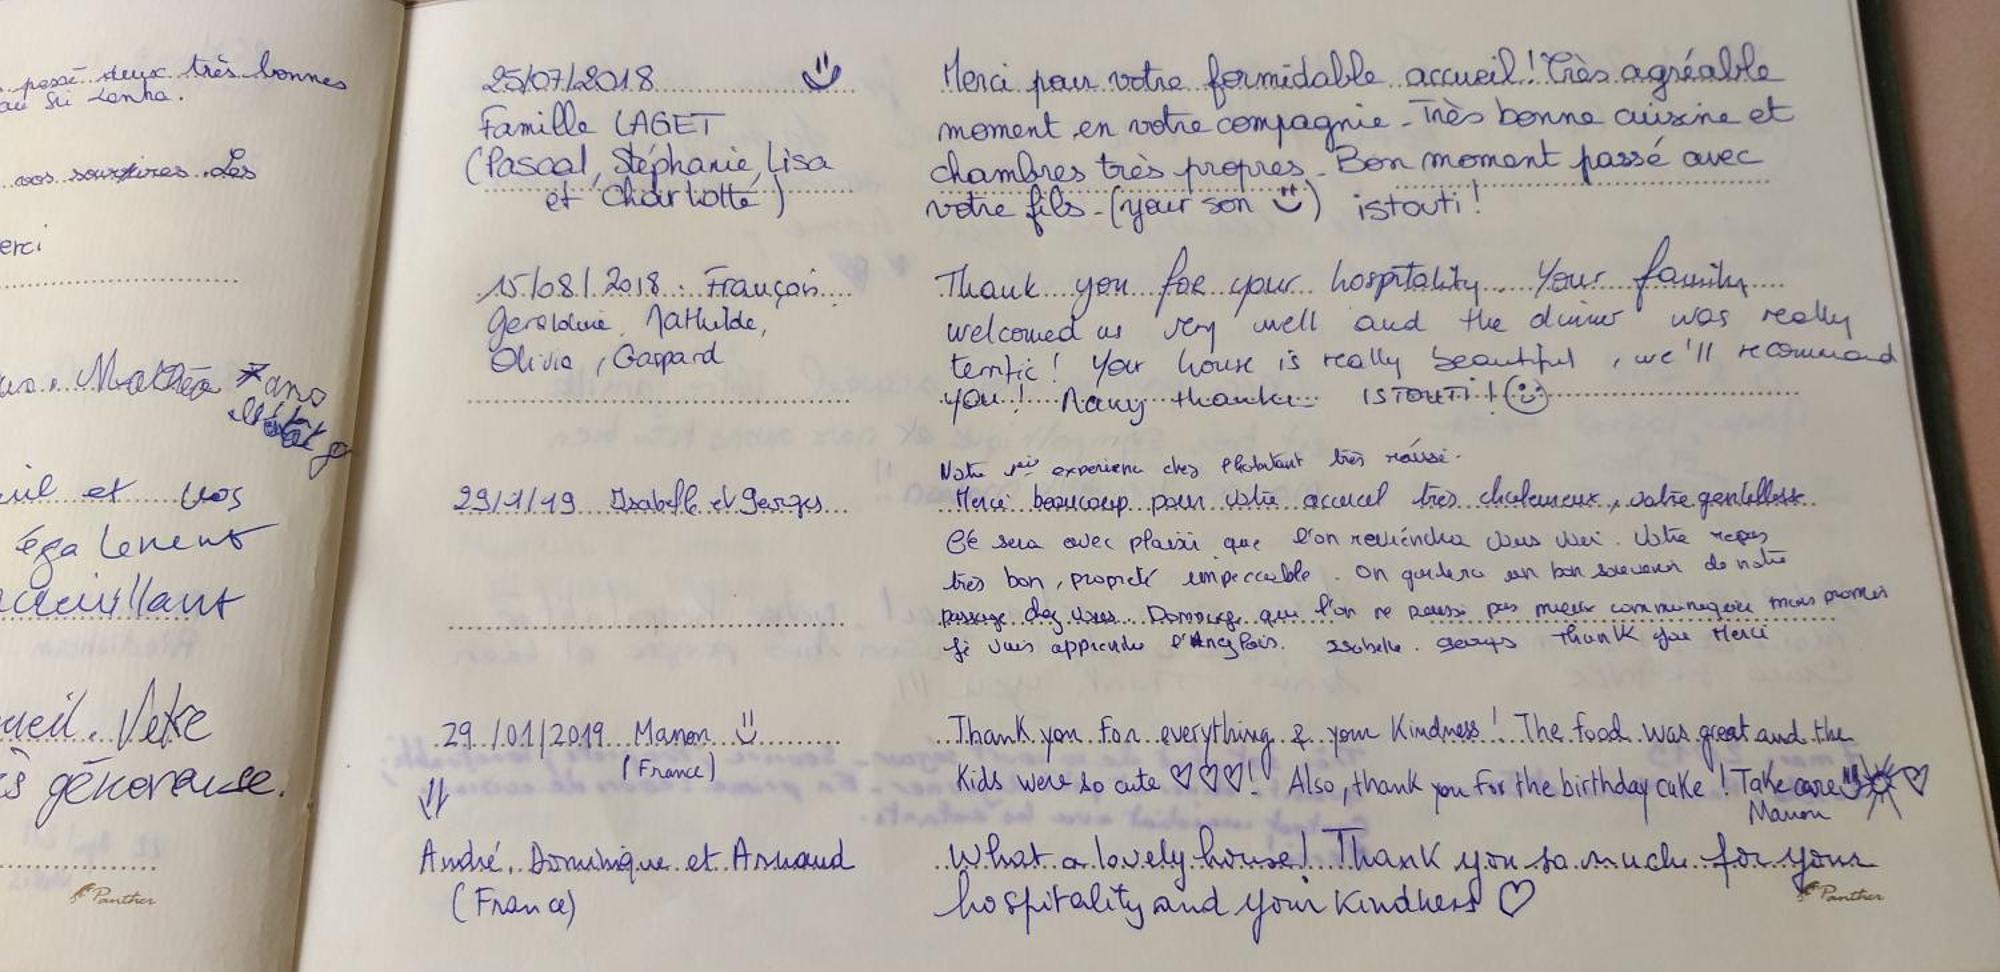 passé deux très bonnes
au Sri Lanka.
vos sourires. Les
erci
Mathéa 7 ans
et vos
également
accueillant
ueil. Votre
s généreuse.
Panther
25/07/2018
Famille LAGET
(Pascal, Stéphanie, Lisa
et Charlotte)
Merci pour votre formidable accueil! Très agréable
moment en votre compagnie - Très bonne cuisine et
chambres très propres - Bon moment passé avec
votre fils - (your son ) istouti!
15/08/2018 : François
Geraldine, Mathilde,
Olivia, Gaspard
Thank you for your hospitality. Your family
welcomed us very well and the dinner was really
terrific! Your house is really beautiful, we'll recommand
you! Many thanks ISTOUTI!
29/1/19 Isabelle et Georges
Notre 1ère experience chez l'habitant très réussi.
Merci beaucoup pour votre accueil très chaleureux, votre gentillesse
Ce sera avec plaisir que l'on reviendra vous voir. Votre repas
très bon, propreté impeccable. On gardera un bon souvenir de notre
passage chez vous. Dommage que l'on ne puisse pas mieux communiquer mais promis
je vais apprendre l'Anglais. Isabelle. Georges Thank you Merci
29/01/2019 Manon
(France)
Thank you for everything & your Kindness! The food was great and the
kids were so cute ♡♡♡! Also, thank you for the birthday cake! Take care ♡
Manon
André, Dominique et Arnaud
(France)
What a lovely house! Thank you so much for your
hospitality and your kindness ♡
Panther